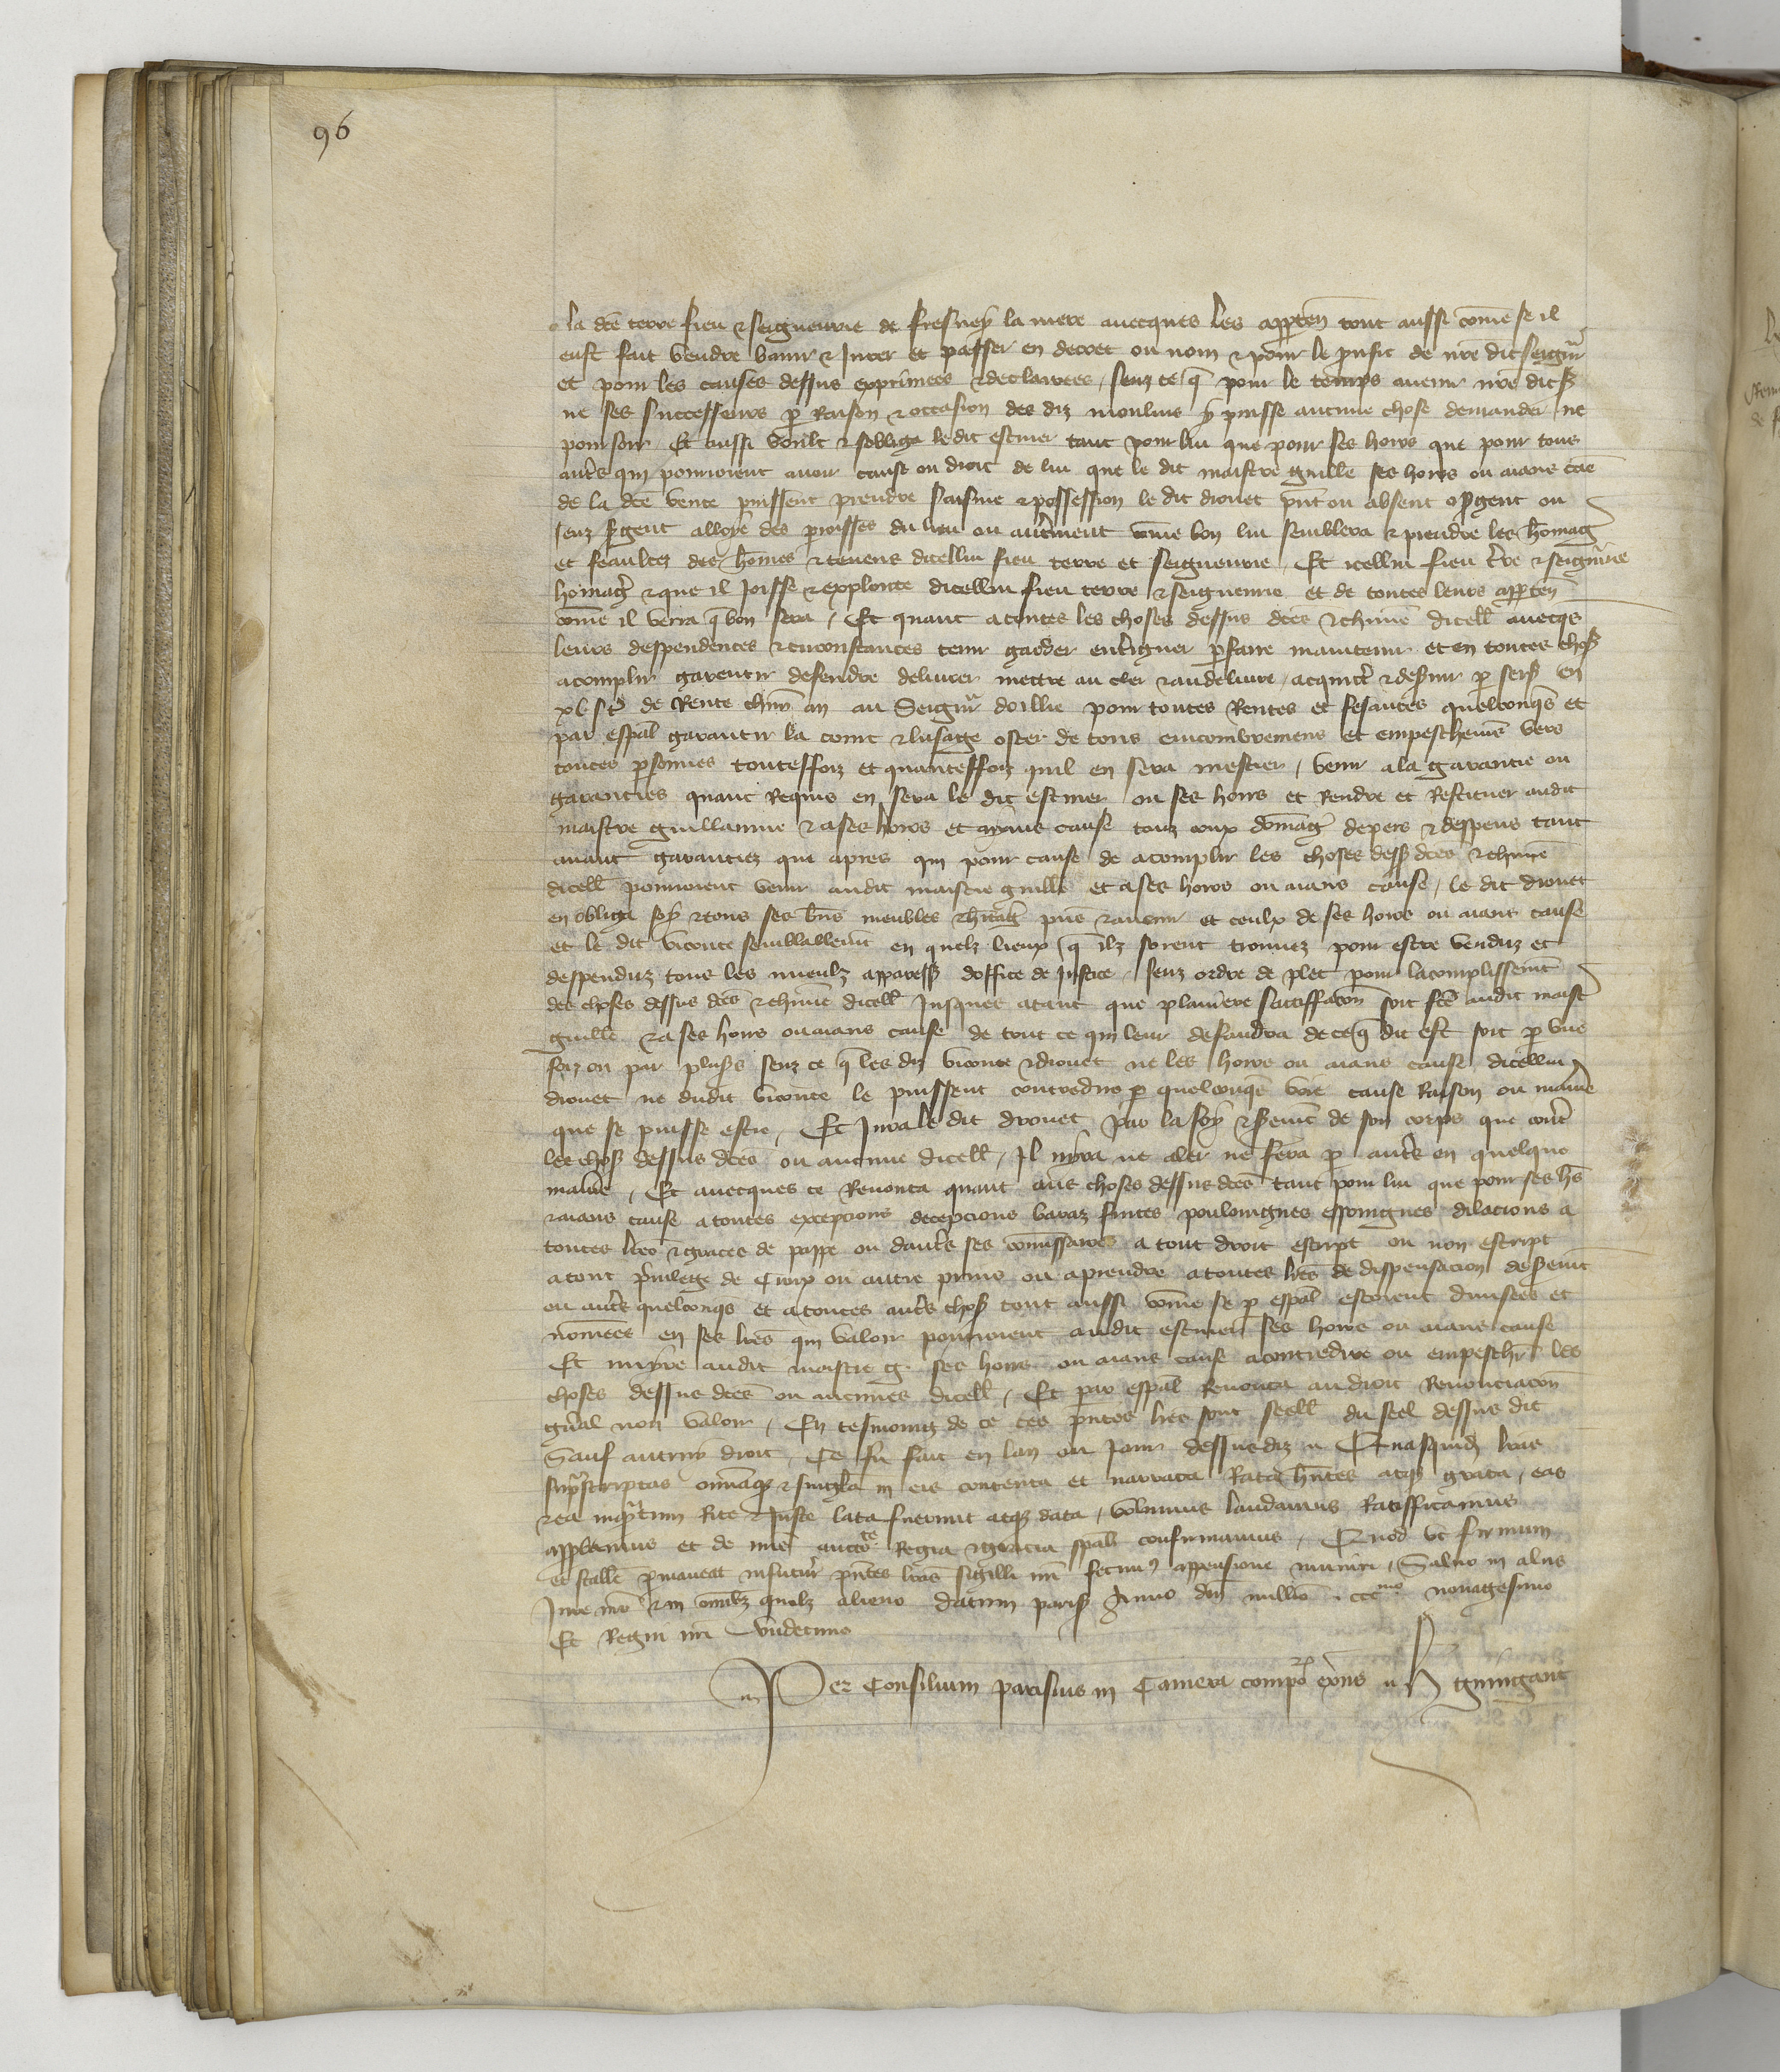 96
la dce terre fieu & seigneurie de fresney la mere avecques les apparten tout aussi come se il
eust fait vendre banir & Jurer et passer en decret ou nom & pour le prufit de nre dit seigneur
et pour les causes dessus exprimees & declairees, senz ce q pour le temps avenir nre dit s
ne ses successeurs p Raison & occasion des diz moulins y puisse aucune chose demander ne
poursoir. Et aussi voult & sobliga le dit escuier tant pour lui que pour ses hoirs que pour tous
autres qui pourroient avoir cause ou droit de lui que le dit maistre guille ses hoirs ou aians cae
de la dce vente puissent prendre saisine & possession le dit drouet pnt ou absent o sgent ou
senz sgent alloye des proisses du lieu ou autrement come bon lui semblera & prendre les homag
et feaultez des homes & tenens dicellui fieu terre et seigneurie. Et icellui fieu tre & seignurie
homag & que il Joisse & exploitte dicellui fieu terre & seigneurie et de toutes leurs apparten
come il verra q bon sera, Et quant a toutes les choses dessus dces & chune dicell avecqs
leurs despendences & circonstances tenir garder enteriguer pfaire maintenir et en toutes chos
acomplir garentir defendre delivrer mettre au cler & au delivre, acquictr & desinir p sers en
xl s t de Rente chun an au Seigneur doillie pour toutes Rentes et fesances quelconqs et
par espal garantir la court & lusage oster de tous encombremens et empeschemens vers
toutes psonnes touteffoiz et quanteffoiz quil en sera mestier, venir a la garantie ou
garanties quant Requis en sera le dit escuier ou ses hoirs et Rendre et Restituer audit
maistre guillaume & a ses hoirs et ayans cause touz coux domag depers & despens tant
avant garantiez que apres qui pour cause de acomplir les choses dess dces & chune
dicell pourroient venir audit maistre guille et a ses hoirs ou aians cause, le dit drouet
en obliga soy & tous ses bns meubles & heritag pns & avenir et ceulx de ses hoirs ou aians cause
et le dit viconte semblablemt en quelz lieux q ilz soient trouvez pour estre venduz et
despenduz tous les mieulz apparess doffice de Justice, senz ordre de plet pour lacomplissemt
des choses dessus dces & chune dicell Jusques atant que plainiere satiffacon soit fce audit maist
guille & a ses hoirs ou aians cause de tout ce qui leur defaudra de ce q dit est soit p une
foiz ou par plus senz ce q les diz viconte & drouet ne les hoirs ou aians cause dicellui
drouet ne dudit viconte le puissent contredire p quelconqs voie cause Raison ou maniere
que se puisse estre, Et Jura le dit drouet par la foy & serment de son corps que contre
les chos dessus dces ou aucune dicell, Il nyra ne aler ne fera p autres en quelque
maniere, Et avecques ce Renonca quant aus choses dessus dces tant pour lui que pour ses hrs
& aians cause a toutes excepcions decepcions baraz fuites pouloingnes essoingnes dilacions a
toutes lres & graces de pappe ou dautres ses comissaires a tout droit escript ou non escript
a tout privilege de Croix ou autre prinse ou a prendre a toutes lres de dispensacion de sermt
ou autres quelconqs et a toutes autres chos tout aussi come se p espal estoient divisees et
nomees en ses lres qui valoir pourroient audit escuier ses hoirs ou aians cause
Et nuyre audit maistre g. ses hoirs ou aians cause a contredire ou empeschr les
choses dessus dces ou aucunes dicell, Et par espal Renonca au droit Renonciacon
gnal non valoir, En tesmoing de ce ces pntes lres sont seell du seel dessus dit
Sauf autrui droit. Ce fu fait en lan ou Jour dessus diz Quasquid lras
suprascriptas omniaq & singla in eis contenta et narrata Rata hntes atq grata, eas
& ea inquantum Rite & Juste lata fuerunt atq data, volumus laudamus Ratifficamus
approbamus et de nre aucto te Regia & gracia spali confirmamus, Quod ut firmum
et stabile pmaneat in futur pntes lras sigilli nri fecim appensione muniri, Salvo in aliis
Jure nro & in omibz quolz alieno datum paris Anno dni millio . ccc mo nonagesimo
Et Regni nri Undecimo
Per Consilium parisius in Camera compo r exns H guingant